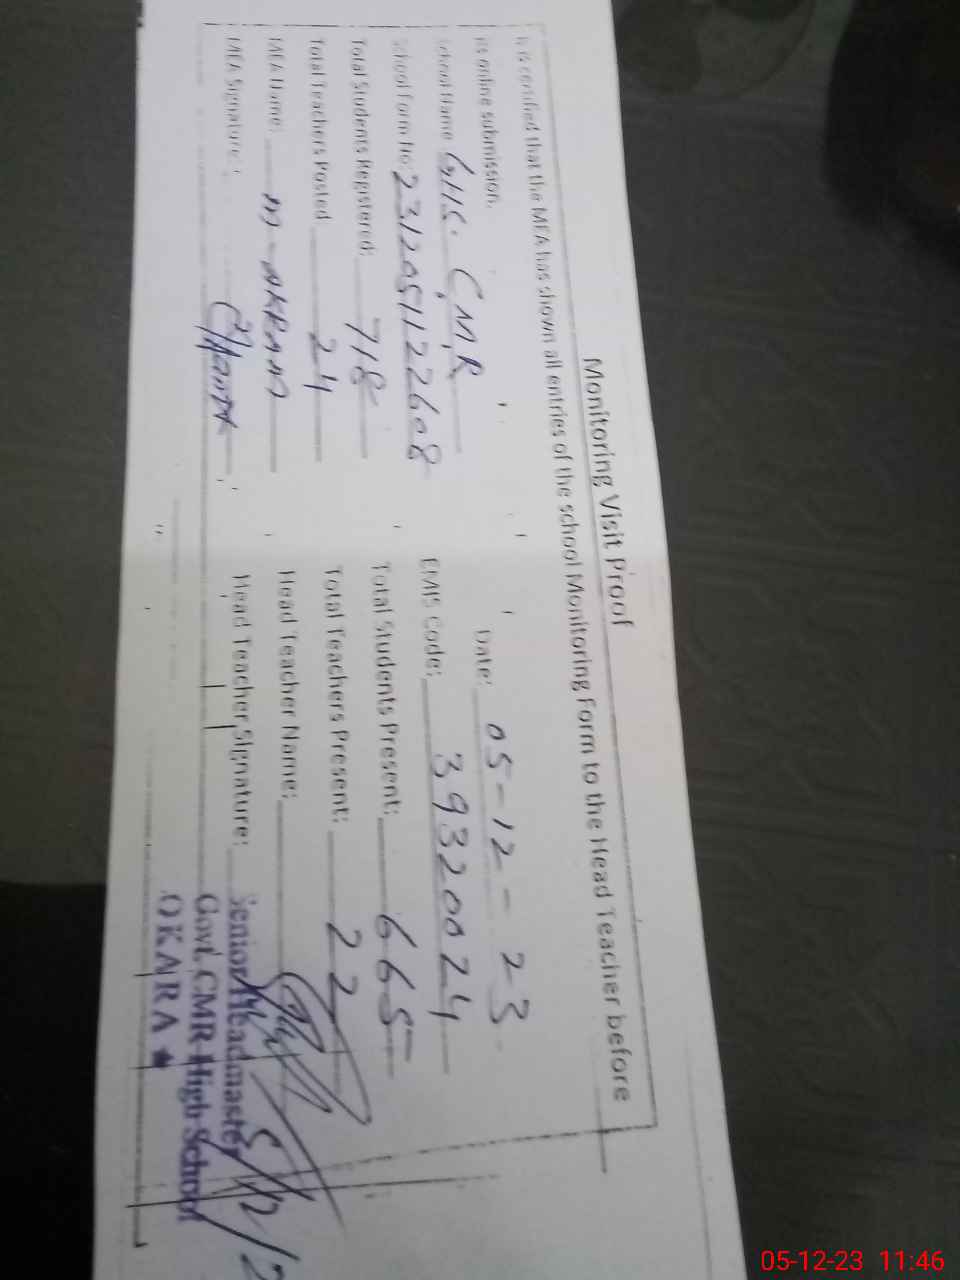 Monitoring Visit Proof
It is certified that the MEA has shown all entries of the school Monitoring Form to the Head Teacher before
its online submission.
Date: 05-12-23
School Name GHS. CMR
EMIS Code: 39320024
School Form No: 2312051122608
Total Students Present: 665
Total Students Registered: 718
Total Teachers Present: 22
Total Teachers Posted 24
Head Teacher Name:
MEA Name: M-AKRAM
Head Teacher Signature:
MEA Signature:
Senior Headmaster
Govt. CMR High School
OKARA
05-12-23 11:46